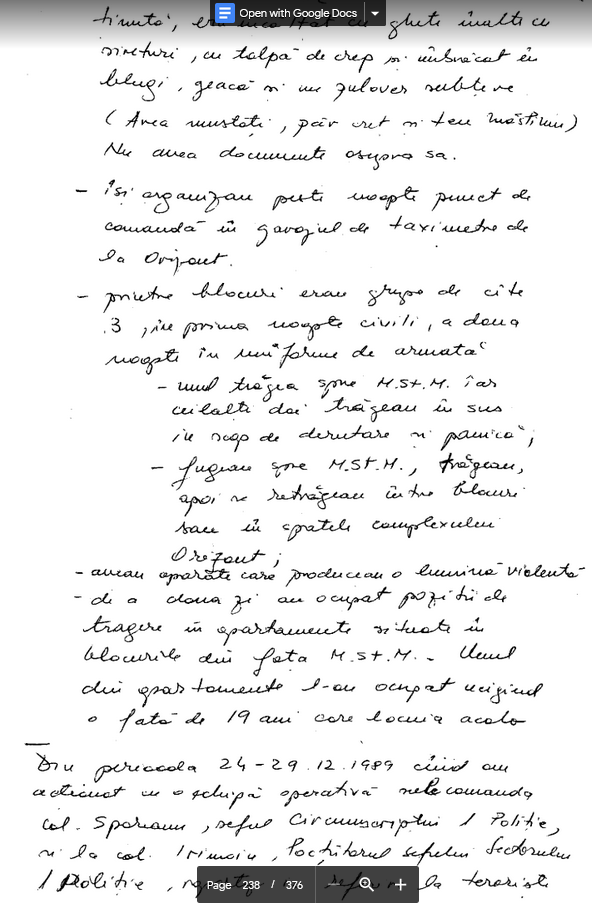 Open with Google Docs
ținută, era cu ghete înalte cu
șireturi, cu talpă de crep și îmbrăcat în
blugi, geacă și un pulover subțire
(Avea mustăți, păr creț și ten măsliniu)
Nu avea documente asupra sa.
- își organizau peste noapte punct de
comandă în garajul de taximetre de
la Orizont.
- printre blocuri erau grupe de cîte
3, în prima noapte civili, a doua
noapte în uniforme de armată
- unul trăgea spre M.St.M. iar
ceilalți doi trăgeau în sus
în scop de derutare și panică;
- fugeau spre M.St.M., trăgeau,
apoi se retrăgeau între blocuri
sau în spatele complexului
Orizont;
- aveau aparate care produceau o lumină violentă
- de a doua zi au ocupat poziții de
tragere în apartamente situate în
blocurile din fața M.St.M. - Unul
din apartamente l-au ocupat ucigînd
o fată de 19 ani care locuia acolo
Din perioada 24-29.12.1989 cînd am
acționat cu o echipă operativă sub comanda
col. , șeful Circumscripției 1 Poliție,
și la col. Irimoiu, locțiitorul șefului Sectorului
1 Poliție, la teroriști
Page 238 / 376